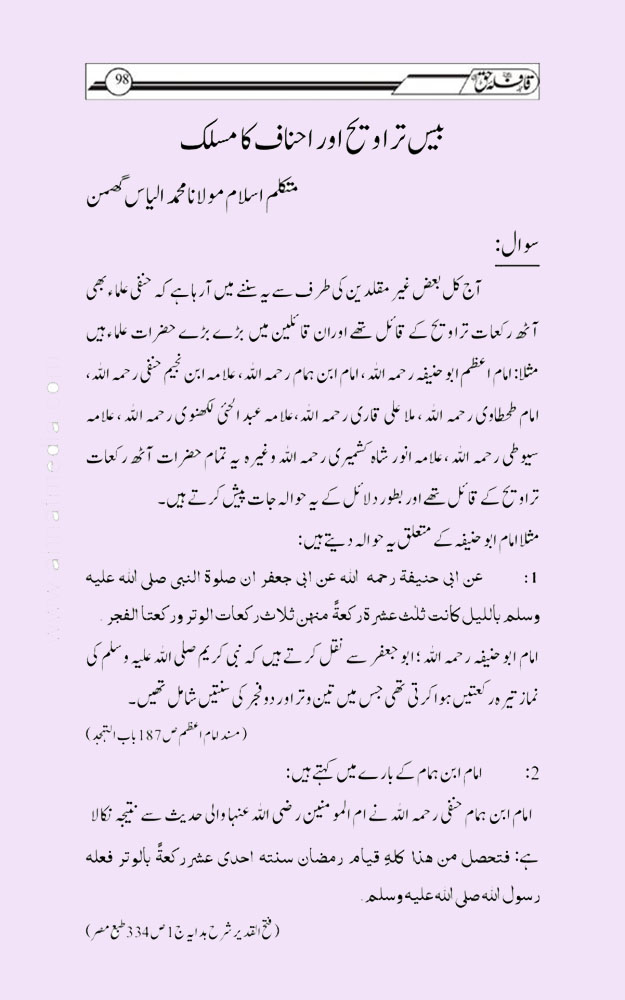 98
قافلہ حق
بیس تراویح اور احناف کا مسلک
متکلم اسلام مولانا محمد الیاس گھمن
سوال:
آج کل بعض غیر مقلدین کی طرف سے یہ سننے میں آ رہا ہے کہ حنفی علماء بھی
آٹھ رکعات تراویح کے قائل تھے اور ان قائلین میں بڑے بڑے حضرات علماء ہیں
مثلا: امام اعظم ابو حنیفہ رحمہ اللہ، امام ابن ہمام رحمہ اللہ، علامہ ابن نجیم حنفی رحمہ اللہ،
امام طحطاوی رحمہ اللہ، ملا علی قاری رحمہ اللہ، علامہ عبد الحئی لکھنوی رحمہ اللہ، علامہ
سیوطی رحمہ اللہ، علامہ انور شاہ کشمیری رحمہ اللہ وغیرہ یہ تمام حضرات آٹھ رکعات
تراویح کے قائل تھے اور بطور دلائل کے یہ حوالہ جات پیش کرتے ہیں۔
مثلا امام ابو حنیفہ کے متعلق یہ حوالہ دیتے ہیں:
1: عن ابی حنیفة رحمه الله عن ابی جعفر ان صلوة النبی صلی الله علیه
وسلم باللیل کانت ثلٰث عشرة رکعةً منهن ثلاث رکعات الوتر ورکعتا الفجر .
امام ابو حنیفہ رحمہ اللہ؛ ابو جعفر سے نقل کرتے ہیں کہ نبی کریم صلی اللہ علیہ وسلم کی
نماز تیرہ رکعتیں ہوا کرتی تھی جس میں تین وتر اور دو فجر کی سنتیں شامل تھیں۔
(مسند امام اعظم ص187 باب التہجد)
2: امام ابن ہمام کے بارے میں کہتے ہیں:
امام ابن ہمام حنفی رحمہ اللہ نے ام المومنین رضی اللہ عنہا والی حدیث سے نتیجہ نکالا
ہے: فتحصل من هذا کله قیام رمضان سنته احدی عشر رکعةً بالوتر فعله
رسول الله صلی الله علیه وسلم.
(فتح القدیر شرح ہدایہ ج1 ص334 طبع مصر)